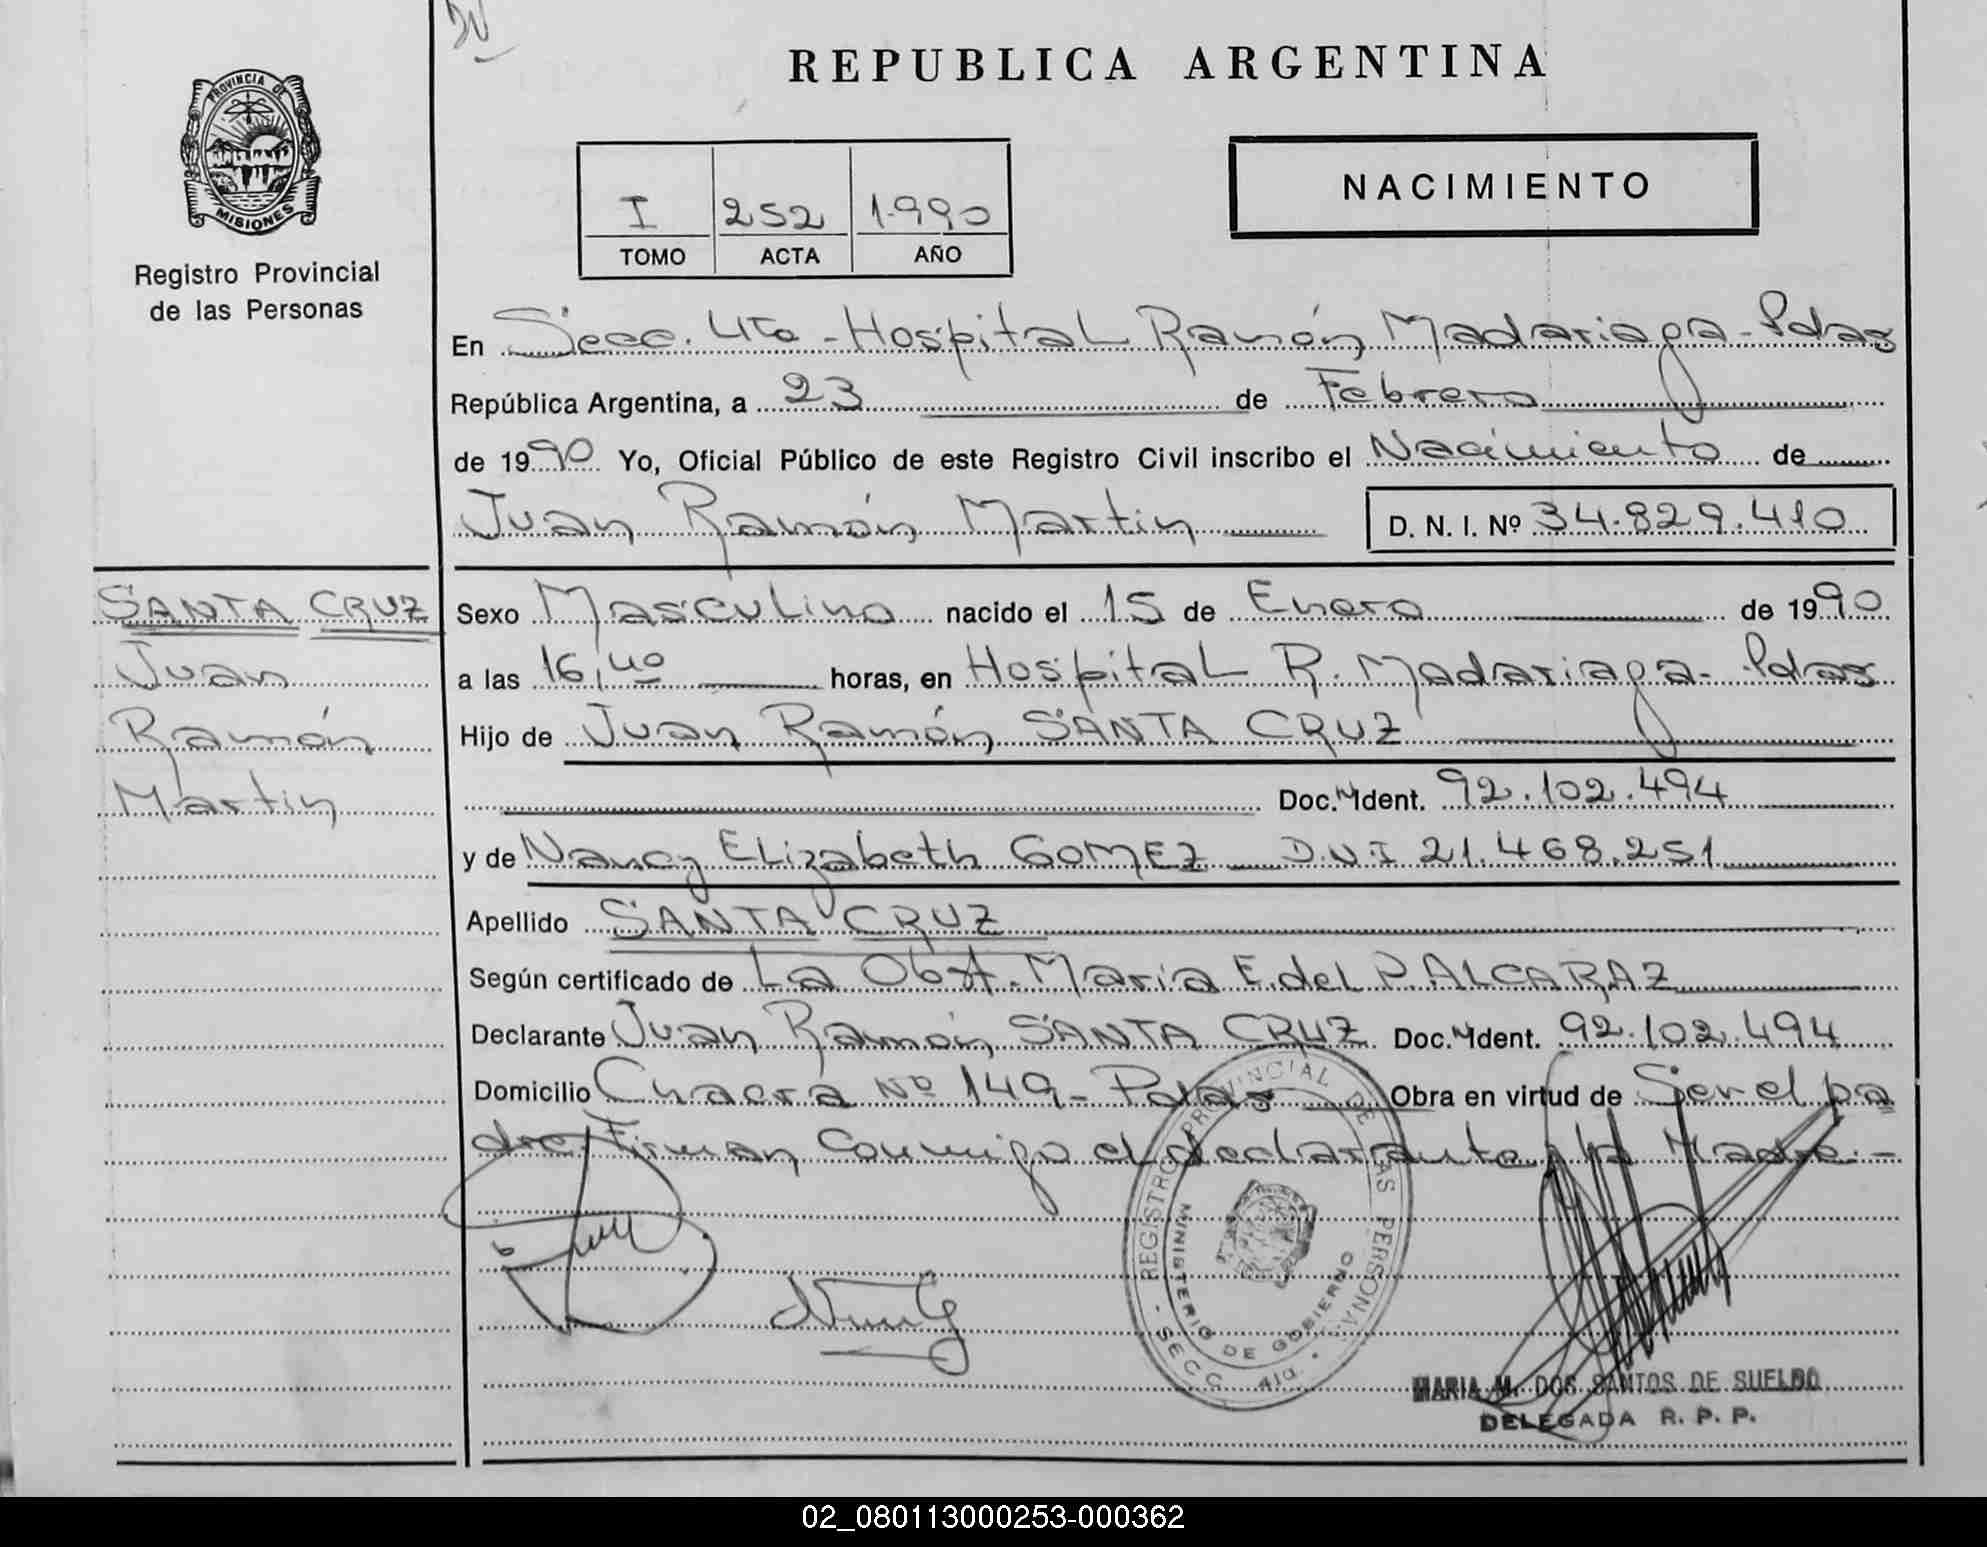 REPUBLICA ARGENTINA
PROVINCIA DE MISIONES
Registro Provincial
de las Personas
I 252 1.990
TOMO ACTA AÑO
NACIMIENTO
En Secc. 4ta - Hospital Ramón Madariaga - Pdas
República Argentina, a 23 de Febrero
de 1990 Yo, Oficial Público de este Registro Civil inscribo el Nacimiento de
Juan Ramón Martin D. N. I. Nº 34.829.410
SANTA CRUZ
Juan
Ramón
Martin
Sexo Masculino nacido el 15 de Enero de 1990
a las 16,40 horas, en Hospital R. Madariaga - Pdas
Hijo de Juan Ramón SANTA CRUZ
Doc. Ident. 92.102.494
y de Nancy Elizabeth GOMEZ D.N.I 21.468.251
Apellido SANTA CRUZ
Según certificado de La Obst. Maria E. del P. ALCARAZ
Declarante Juan Ramón SANTA CRUZ Doc. Ident. 92.102.494
Domicilio Chacra Nº 149 - Pdas Obra en virtud de Ser el pa
dre, Firman Conmigo el declarante y la Madre.-
REGISTRO PROVINCIAL DE LAS PERSONAS
MINISTERIO DE GOBIERNO
SECC. 4ta.
MARIA M. DOS SANTOS DE SUELDO
DELEGADA R. P. P.
02_080113000253-000362